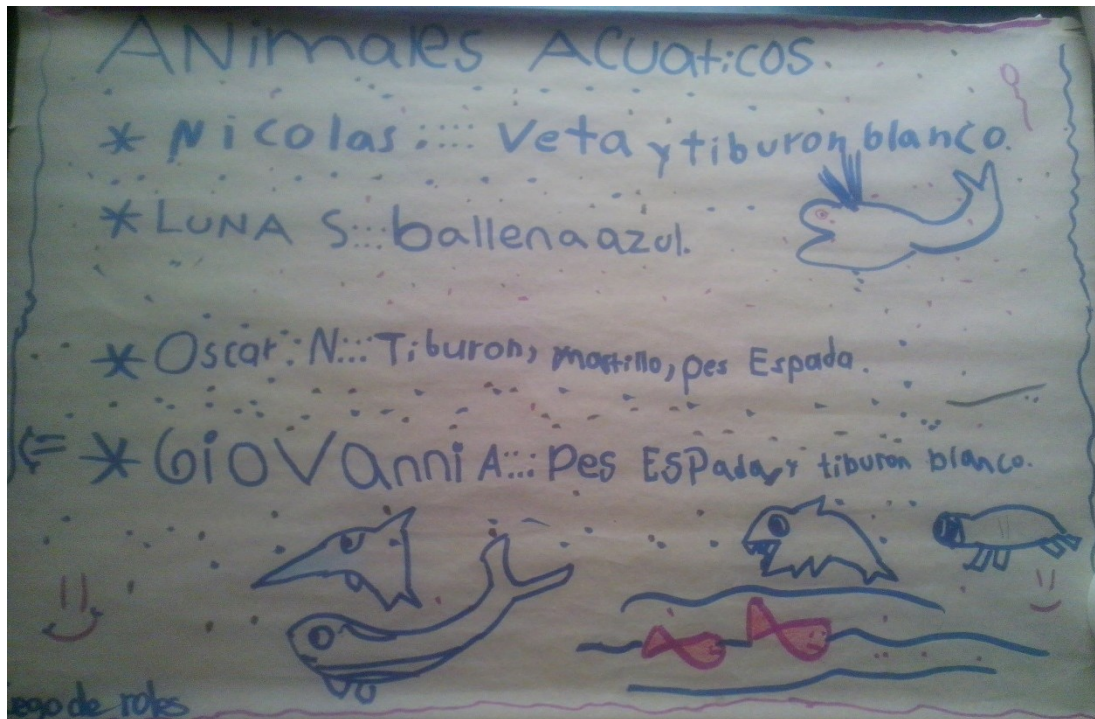 ANimales Acuaticos.
* Nicolas:::: Veta y tiburon blanco.
* LUNA S::: ballena azul.
* Oscar: N::: Tiburon, martillo, pes Espada.
* GioVanni A:::: Pes ESPada, y tiburon blanco.
de roles